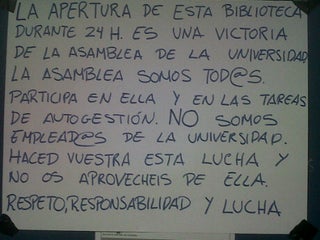 LA APERTURA DE ESTA BIBLIOTECA
DURANTE 24 H. ES UNA VICTORIA
DE LA ASAMBLEA DE LA UNIVERSIDAD.
LA ASAMBLEA SOMOS TOD@S.
PARTICIPA EN ELLA Y EN LAS TAREAS
DE AUTOGESTIÓN. NO SOMOS
EMPLEAD@S DE LA UNIVERSIDAD.
HACED VUESTRA ESTA LUCHA Y
NO OS APROVECHEIS DE ELLA.
RESPETO, RESPONSABILIDAD Y LUCHA